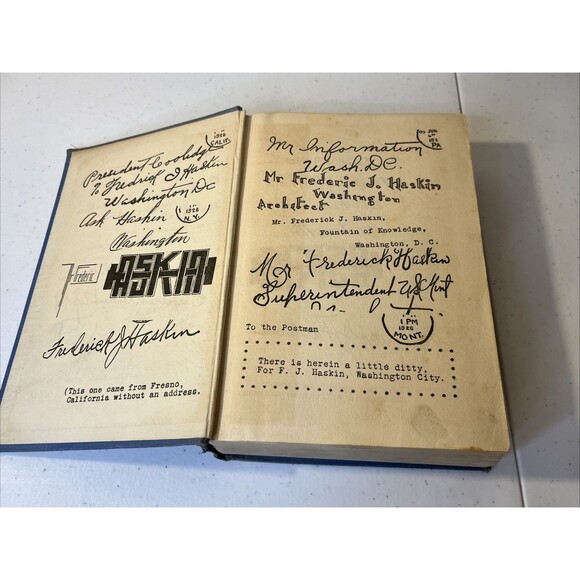 1926
CALIF.
President Coolidge
To Fredrick J Haskin
Washington DC
Ask Haskin
1926
N.Y.
Washington
Frederic
HASKIN
Frederick J Haskin
(This one came from Fresno,
California without an address.
PA
Mr Information
Wash. D.C.
Mr Frederic J. Haskin
Washington
Architect
Mr. Frederick J. Haskin,
Fountain of Knowledge,
Washington, D. C.
Mr Frederick Haskin
Superintendent U.S. Mint
1 PM
1926
MONT.
To the Postman
There is herein a little ditty,
For F. J. Haskin, Washington City.